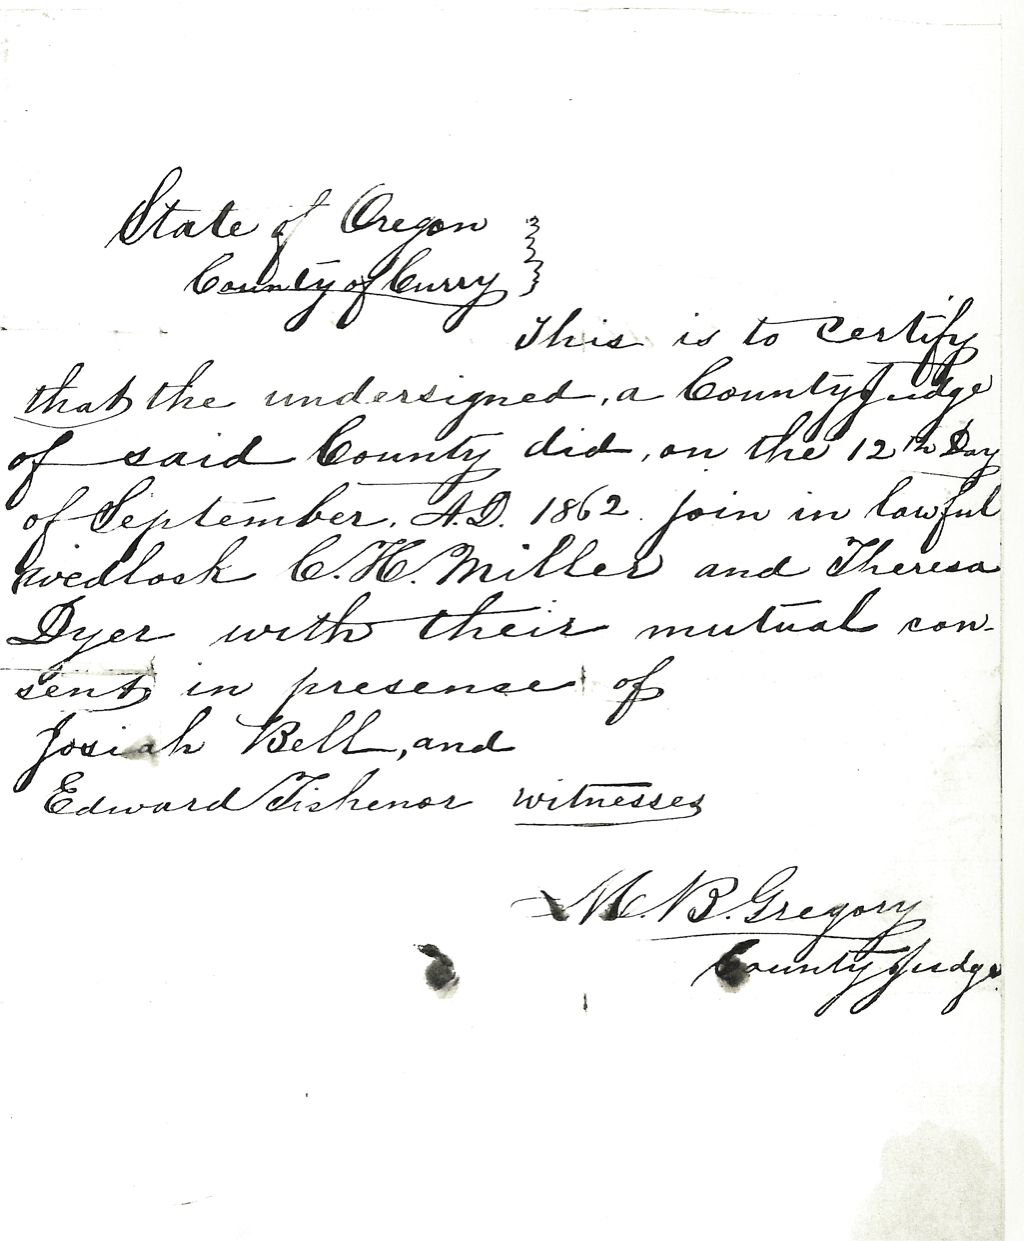 State of Oregon
County of Curry
This is to certify
that the undersigned, a County Judge
of said County did, on the 12th Day
of September, A.D. 1862. join in lawful
wedlock C. H. Miller and Theresa
Dyer with their mutual con-
sent, in presense of
Josiah Bell, and
Edward Tishenor witnesses
M. B. Gregory
County Judge.